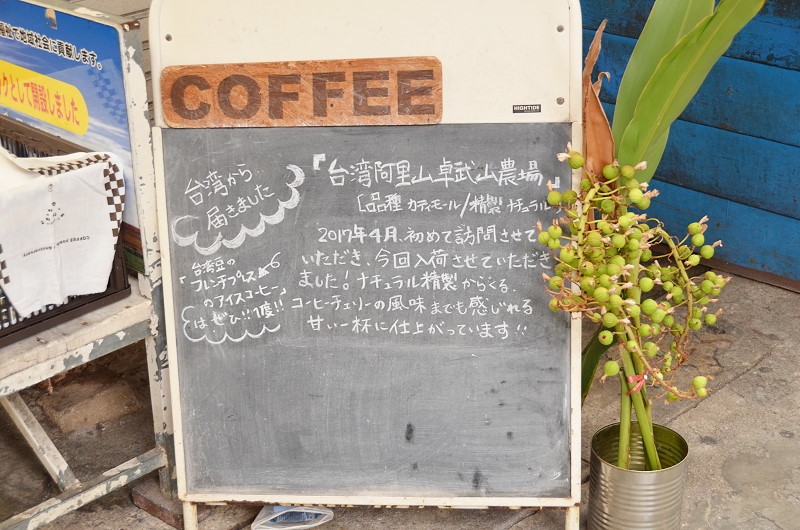 福祉で地域社会に貢献します。
クとして開設しました
COFFEE
HIGHTIDE
台湾から
届きました
『台湾阿里山卓武山農場』
[品種 カティモール/精製 ナチュラル]
2017年4月、初めて訪問させて
いただき、今回入荷させていただき
ました! ナチュラル精製からくる、
コーヒーチェリーの風味までも感じれる
甘い一杯に仕上がっています!!
「台湾豆の
フレンチプレス
のアイスコーヒー」
は ぜひ!! 1度!!